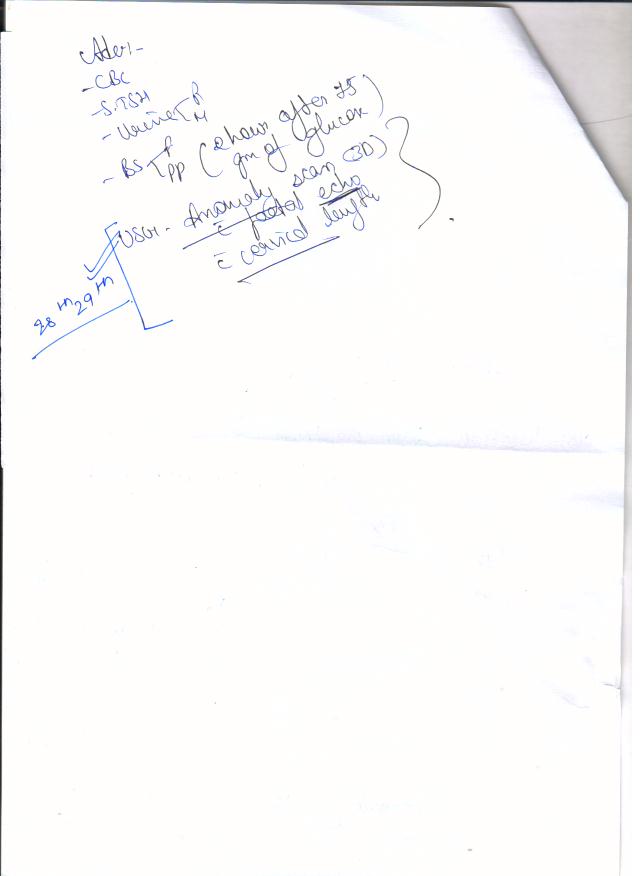 Adv:-
- CBC
- S.TSH
- Urine R M
- BS F PP (2 hour after 75 gm of glucose)
USG - Anomaly scan (3D)
c̄ foetal echo
c̄ cervical length
28th 29th